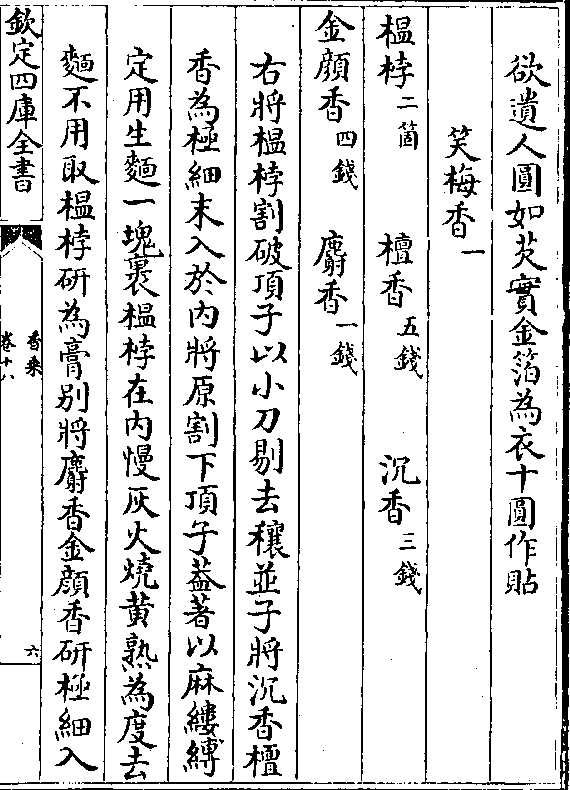 欲遺人圓如芡實金箔為衣十圓作貼
笑梅香一
榲桲二箇　檀香五錢　沉香三錢
金顔香四錢　麝香一錢
右將榲桲割破頂子以小刀剔去穰並子將沉香檀
香為極細末入於内將原割下頂子葢著以麻縷縛
定用生麵一塊裹榲桲在内慢灰火燒黄熟為度去
麵不用取榲桲研為膏别將麝香金顔香研極細入
欽定四庫全書
香乘
卷十八
六